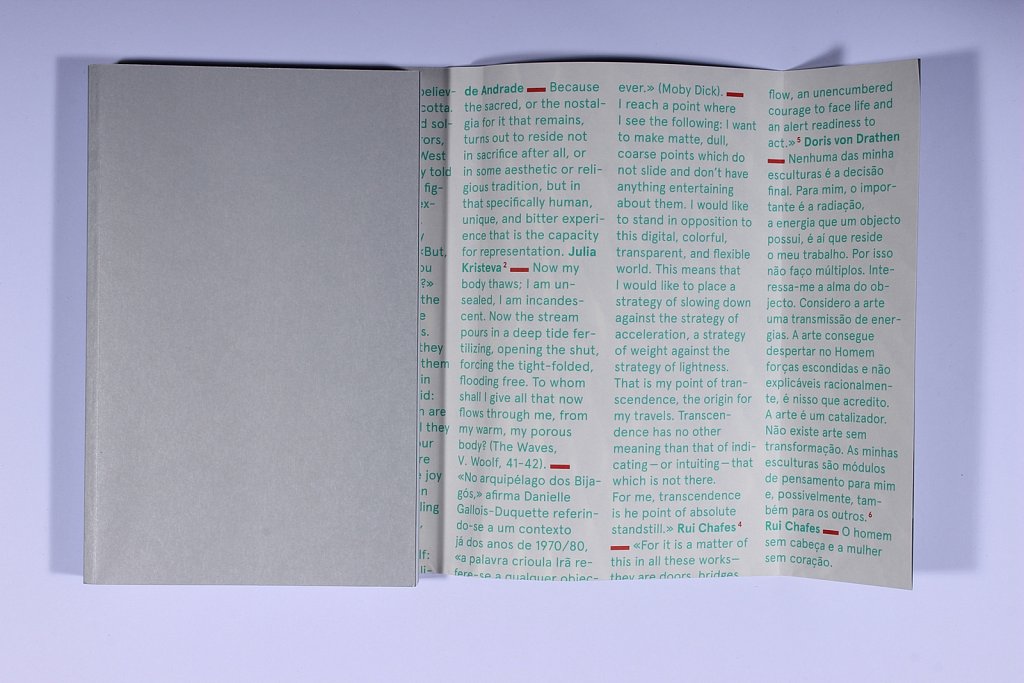 believ-
cotta.
d sol-
rors,
West
y told
fig-
ex-
y
«But,
ou
?»
the
e
s.
they
them
in
id:
n are
l they
our
re
joy
n
ling
,
lf:
li-
de Andrade — Because
the sacred, or the nostal-
gia for it that remains,
turns out to reside not
in sacrifice after all, or
in some aesthetic or reli-
gious tradition, but in
that specifically human,
unique, and bitter experi-
ence that is the capacity
for representation. Julia
Kristeva² — Now my
body thaws; I am un-
sealed, I am incandes-
cent. Now the stream
pours in a deep tide fer-
tilizing, opening the shut,
forcing the tight-folded,
flooding free. To whom
shall I give all that now
flows through me, from
my warm, my porous
body? (The Waves,
V. Woolf, 41–42). —
«No arquipélago dos Bija-
gós,» afirma Danielle
Gallois-Duquette referin-
do-se a um contexto
já dos anos de 1970/80,
«a palavra crioula Irã re-
fere-se a qualquer objec-
ever.» (Moby Dick). —
I reach a point where
I see the following: I want
to make matte, dull,
coarse points which do
not slide and don't have
anything entertaining
about them. I would like
to stand in opposition to
this digital, colorful,
transparent, and flexible
world. This means that
I would like to place a
strategy of slowing down
against the strategy of
acceleration, a strategy
of weight against the
strategy of lightness.
That is my point of tran-
scendence, the origin for
my travels. Transcen-
dence has no other
meaning than that of indi-
cating — or intuiting — that
which is not there.
For me, transcendence
is he point of absolute
standstill.» Rui Chafes⁴
— «For it is a matter of
this in all these works—
they are doors, bridges
flow, an unencumbered
courage to face life and
an alert readiness to
act.»⁵ Doris von Drathen
— Nenhuma das minha
esculturas é a decisão
final. Para mim, o impor-
tante é a radiação,
a energia que um objecto
possui, é aí que reside
o meu trabalho. Por isso
não faço múltiplos. Inte-
ressa-me a alma do ob-
jecto. Considero a arte
uma transmissão de ener-
gias. A arte consegue
despertar no Homem
forças escondidas e não
explicáveis racionalmen-
te, é nisso que acredito.
A arte é um catalizador.
Não existe arte sem
transformação. As minhas
esculturas são módulos
de pensamento para mim
e, possivelmente, tam-
bém para os outros.⁶
Rui Chafes — O homem
sem cabeça e a mulher
sem coração.